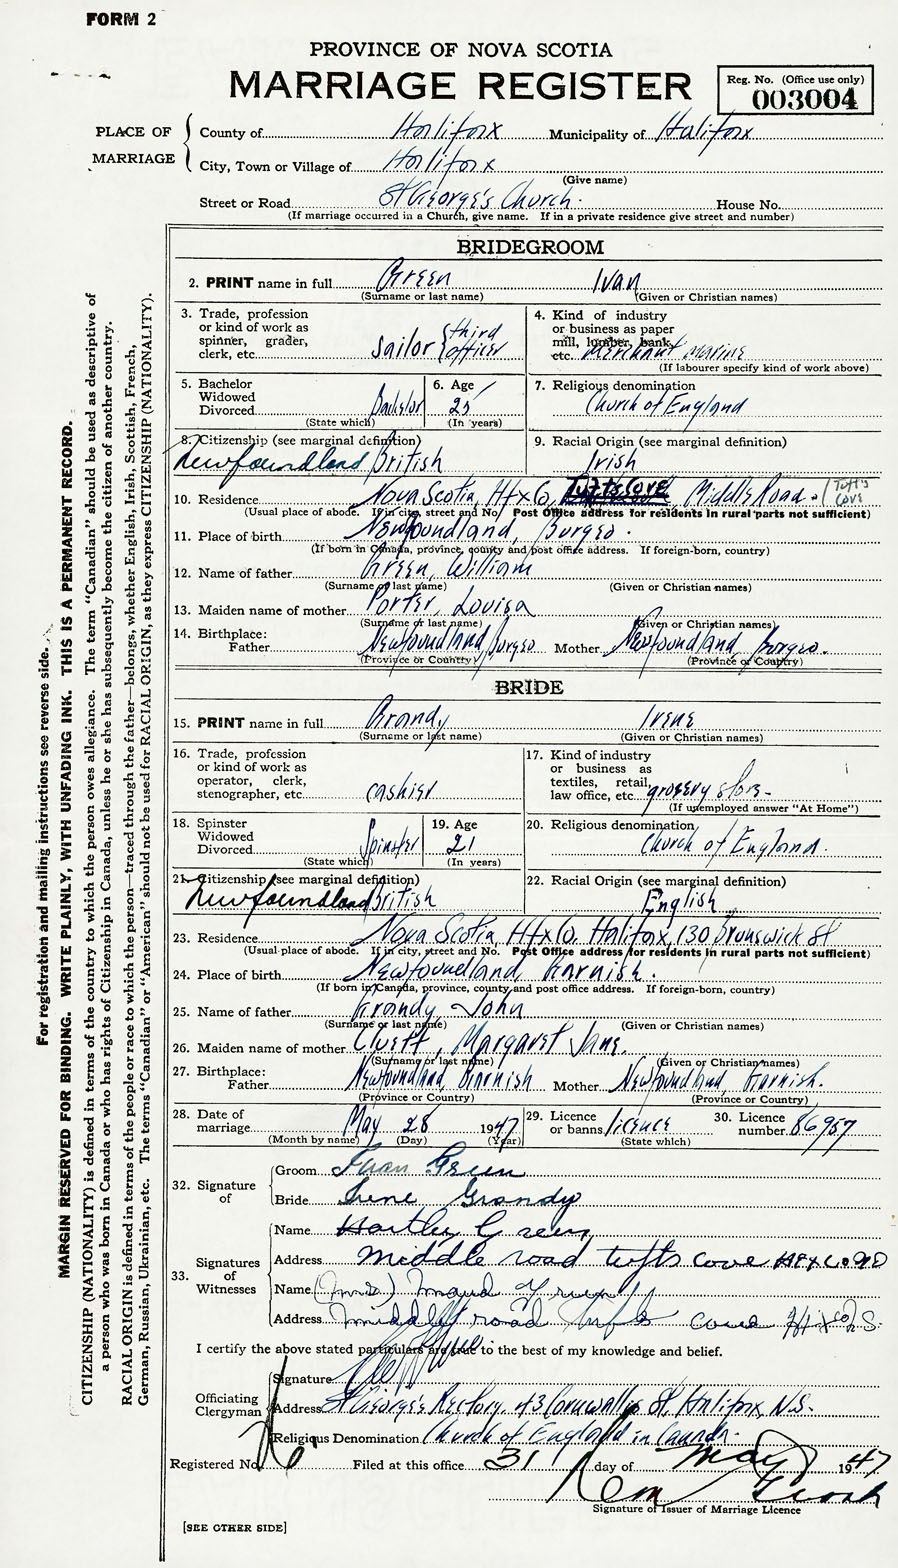 FORM 2
PROVINCE OF NOVA SCOTIA
MARRIAGE REGISTER
Reg. No. (Office use only)
003004
PLACE OF MARRIAGE
County of Halifax Municipality of Halifax
City, Town or Village of Halifax
(Give name)
Street or Road St George's Church. House No.
(If marriage occurred in a Church, give name. If in a private residence give street and number)
BRIDEGROOM
2. PRINT name in full Green Ivan
(Surname or last name) (Given or Christian names)
3. Trade, profession or kind of work as spinner, grader, clerk, etc. Sailor {third officer
4. Kind of industry or business as paper mill, lumber, bank, etc. Merchant Marine
(If labourer specify kind of work above)
5. Bachelor Widowed Divorced Bachelor
(State which)
6. Age 25
(In years)
7. Religious denomination Church of England
8. Citizenship (see marginal definition) Newfoundland British
9. Racial Origin (see marginal definition) Irish
10. Residence Nova Scotia, Hfx Co, Tufts Cove, Middle Road. (Tuft's Cove
(Usual place of abode. If in city, street and No. Post Office address for residents in rural parts not sufficient)
11. Place of birth Newfoundland, Burgeo.
(If born in Canada, province, county and post office address. If foreign-born, country)
12. Name of father Green, William
(Surname or last name) (Given or Christian names)
13. Maiden name of mother Porter, Louisa
(Surname or last name) (Given or Christian names)
14. Birthplace: Father Newfoundland, Burgeo Mother Newfoundland, Burgeo.
(Province or Country) (Province or Country)
BRIDE
15. PRINT name in full Grandy Irene
(Surname or last name) (Given or Christian names)
16. Trade, profession or kind of work as operator, clerk, stenographer, etc. cashier
17. Kind of industry or business as textiles, retail, law office, etc. grocery store-
(If unemployed answer "At Home")
18. Spinster Widowed Divorced Spinster
(State which)
19. Age 21
(In years)
20. Religious denomination Church of England.
21. Citizenship (see marginal definition) Newfoundland British
22. Racial Origin (see marginal definition) English
23. Residence Nova Scotia, Hfx Co, Halifax, 130 Brunswick St
(Usual place of abode. If in city, street and No. Post Office address for residents in rural parts not sufficient)
24. Place of birth Newfoundland, Garnish.
(If born in Canada, province, county and post office address. If foreign-born, country)
25. Name of father Grandy, John
(Surname or last name) (Given or Christian names)
26. Maiden name of mother Cluett, Margaret Jane.
(Surname or last name) (Given or Christian names)
27. Birthplace: Father Newfoundland, Garnish Mother Newfoundland, Garnish.
(Province or Country) (Province or Country)
28. Date of marriage May 28 1947
(Month by name) (Day) (Year)
29. Licence or banns licence
(State which)
30. Licence number 86957
32. Signature of
Groom Ivan Green
Bride Irene Grandy
33. Signatures of Witnesses
Name Hartley Green
Address Middle road tufts cove Hfx Co NS
Name (Mrs) Maud Green
Address Middle road Tufts cove Hfx Co N.S.
I certify the above stated particulars are true to the best of my knowledge and belief.
Officiating Clergyman
Signature
Address St George's Rectory 43 Cornwallis St, Halifax, N.S.
Religious Denomination Church of England in Canada.
Registered No. Filed at this office 31 day of May 1947
Signature of Issuer of Marriage Licence
[SEE OTHER SIDE]
For registration and mailing instructions see reverse side.
MARGIN RESERVED FOR BINDING. WRITE PLAINLY, WITH UNFADING INK. THIS IS A PERMANENT RECORD.
CITIZENSHIP (NATIONALITY) is defined in terms of the country to which the person owes allegiance. The term "Canadian" should be used as descriptive of
a person who was born in Canada or who has rights of Citizenship in Canada, unless he or she has subsequently become the citizen of another country.
RACIAL ORIGIN is defined in terms of the people or race to which the person—traced through the father—belongs, whether English, Irish, Scottish, French,
German, Russian, Ukrainian, etc. The terms "Canadian" or "American" should not be used for RACIAL ORIGIN, as they express CITIZENSHIP (NATIONALITY).